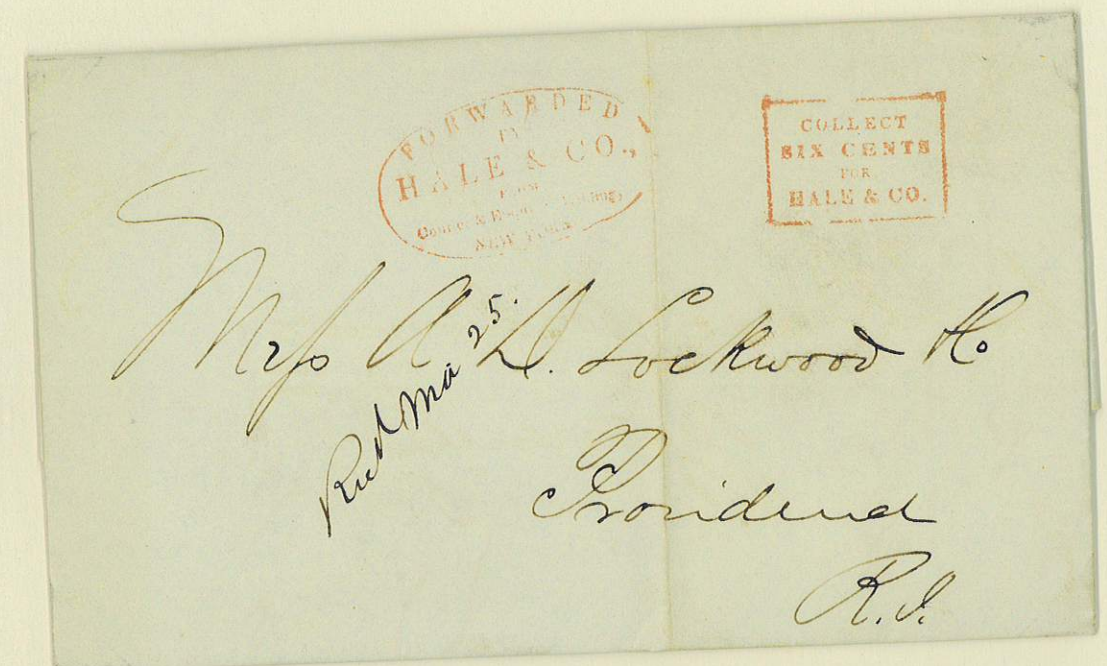 FORWARDED
BY
HALE & CO.,
FROM
NEW YORK
COLLECT
SIX CENTS
FOR
HALE & CO.
Mess A. D. Lockwood & Co
Recd Ma 25.
Providence
R.I.